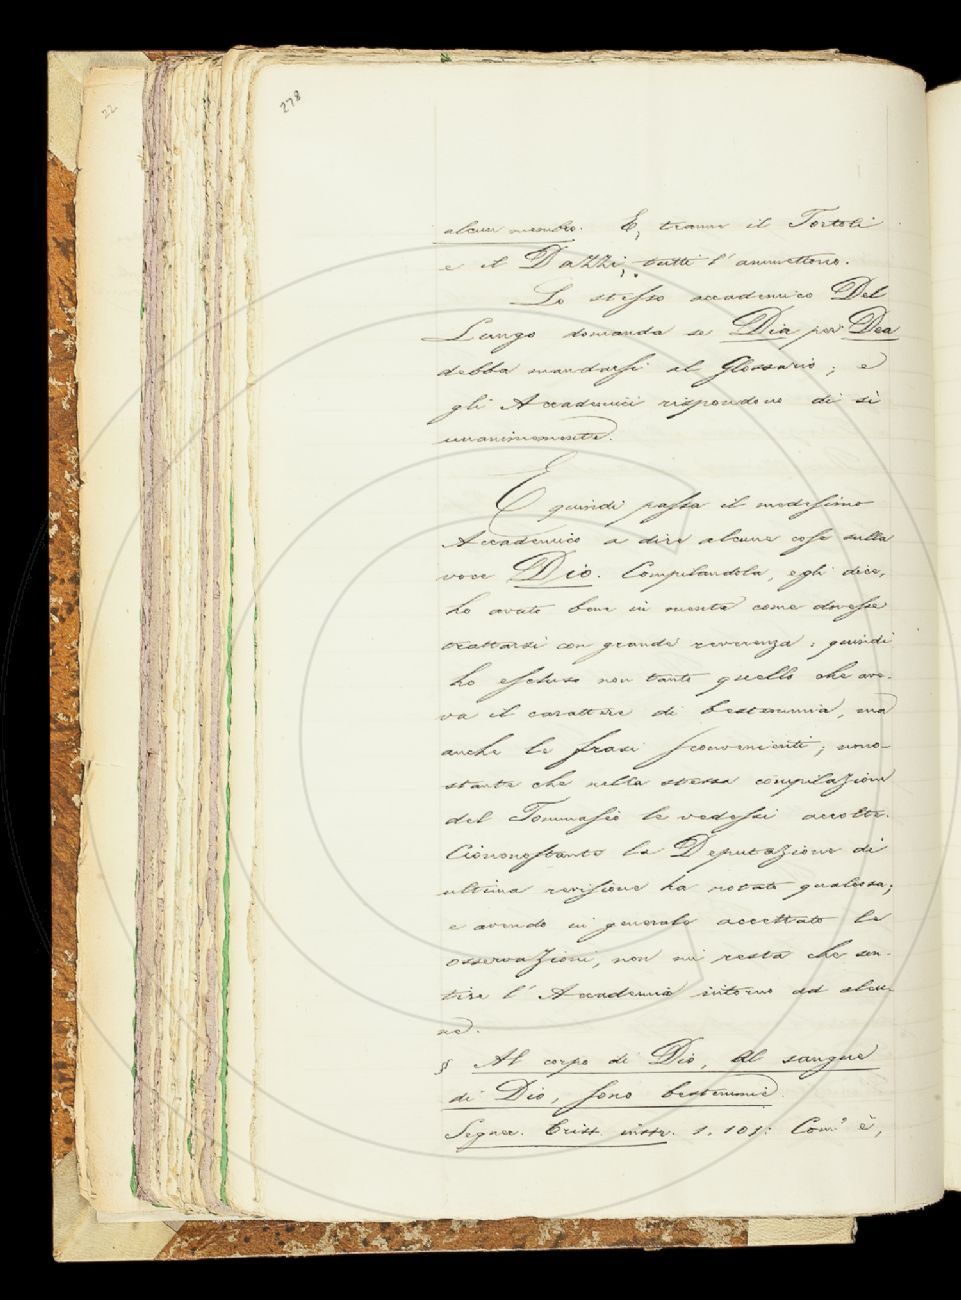 22
278
alcun membro. E, tranne il Tortoli
e il Dazzi, tutti l'ammettono.
Lo stesso accademico Del
Lungo domanda se Dia per Dea
debba mandarsi al Glossario; e
gli Accademici rispondono di sì
unanimemente.
E quindi passa il medesimo
Accademico a dire alcune cose sulla
voce Dio. Compilandola, egli dice,
ho avuto bene in mente come dovesse
trattarsi con grande reverenza: quindi
ho escluso non tanto quello che ave-
va il carattere di bestemmia, ma
anche le frasi sconvenienti; nono-
stante che nella stessa compilazione
del Tommaseo le vedessi accolte.
Ciononostante la Deputazione di
ultima revisione ha notato qualcosa;
e avendo in generale accettato le
osservazioni, non mi resta che sen-
tire l'Accademia intorno ad alcu-
ne.
§ Al corpo di Dio, Al sangue
di Dio, sono bestemmie.
Segner. Crist. instr. 1. 101: Com' è,